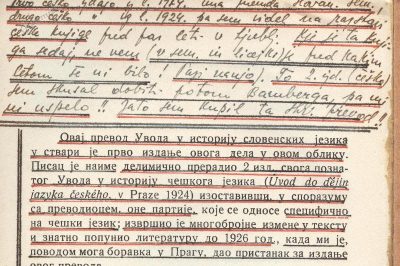 drugo češko " l. 1924. pa sem videl na razstavi
češke knjige pred par leti v Ljublj. Kje je ta knji-
ga sedaj, ne vem
letom še ni bilo! To 2. izd. (češko)
sem skušal dobiti potom Bamberga, pa mi
ni uspelo!! Zato sem kupil ta
Овај превод Увода у историју словенских језика
у ствари је прво издање овога дела у овом облику.
Писац је наиме делимично прерадио 2 изд. свога позна-
тог Увода у историју чешкога језика (Uvod do dějin
jazyka českého, v Praze 1924) изоставивши, у споразуму
са преводиоцем, оне партије, које се односе специфично
на чешки језик; извршио је многобројне измене у тексту
и знатно попунио литературу до 1926 год., када ми је,
поводом мога боравка у Прагу, дао пристанак за издање
овог превода.